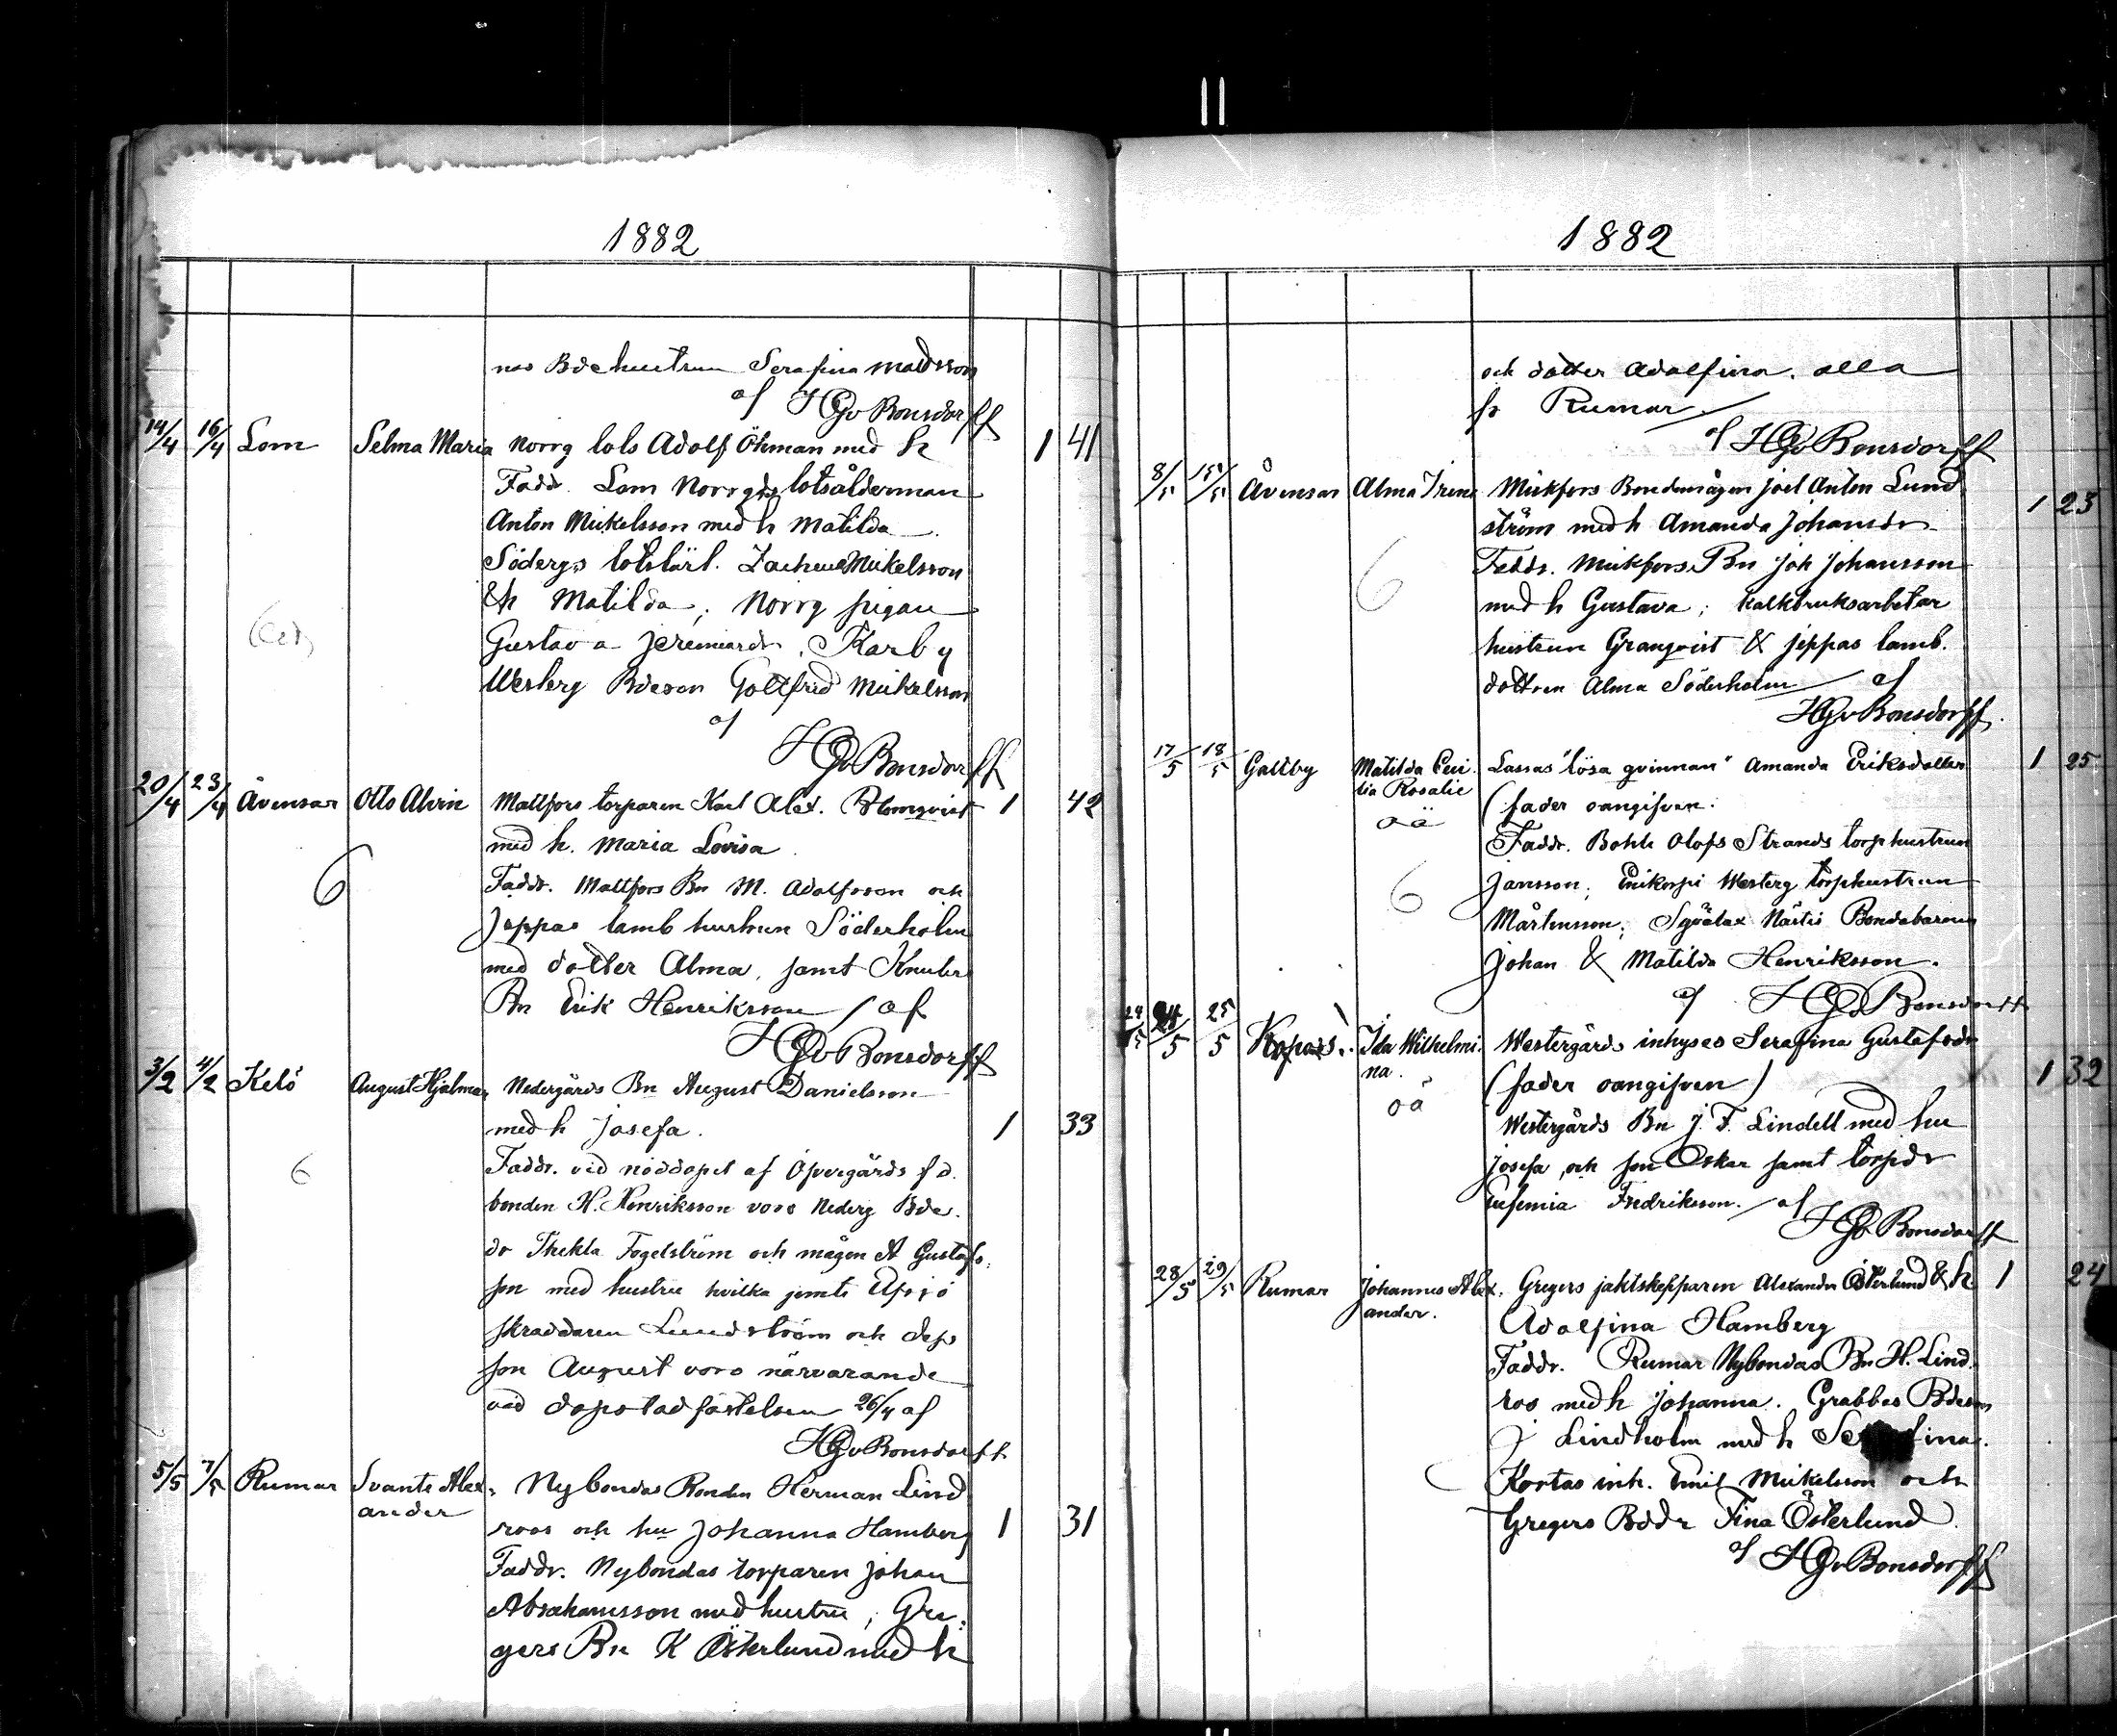 1882
nas Bdehustrun Serafina Mattsson
af HGvBonsdorff
14/4 16/4 Lom Selma Maria Norrg lots Adolf Öhman med h 1 41
Fadd. Lom Norrgds lotsålderman
Anton Mickelsson med h Matilda
Södergs lotslärl. Mickelsson
& h Matilda, Norrg pigan
Gustava Jeremiasdr, Karby
Westerg Bdeson Gottfrid Mickelsson
af
HGvBonsdorff
20/4 23/4 Åvensar Otto Alvin Mattfors torparen Karl Alex. Blomqvist 1 42
med h. Maria Lovisa
6
Faddr. Mattfors Bn M. Adolfsson och
Jeppas lamb hustrun Söderholm
med dotter Alma, samt
Bn Erik Henriksson / af
HGvBonsdorff
3/2 4/2 Kelö August Hjalmar Nedergårds Bn August Danielsson
med h Josefa. 1 33
6
Faddr. vid nöddopet af Öfvergårds fd.
bonden H. Henriksson voro Nederg Bde.
dr Thekla Fogelström och mågen A Gustafs.
son med hustru hvilka jemte
skräddaren Lundström och dess
son August voro närvarande
vid dopstadfästelsen 26/4 af
HGvBonsdorff
5/5 7/5 Rumar Svante Alex. Nybondas Bonden Herman Lind
ander
roos och hu Johanna Hamberg 1 31
Faddr. Nybondas torparen Johan
Abrahamsson med hustru, Gre.
gers Bn K Österlund med h
1882
och dotter Adolfina. alla
fr Rumar
af HGvBonsdorff
8/5 15/5 Åvensar Alma Irene Mickfors Bondemågen Joel Anton Lund 1 23
ström med h Amanda Johansdr
6
Faddr. Mickfors Bn Joh Johansson
med h Gustava, kalkbruksarbetar
hustrun Granqvist & Jeppas lamb.
dottren Alma Söderholm / af
HGvBonsdorff.
17/5 18/5 Galtby Matilda Ceci.
lia Rosalie
oä
Lassas "lösa qvinnan" Amanda Eriksdotter 1 25
(fader oangifven.
6
Faddr. Olofs Strands torphustrun
Jansson, Westerg torphustrun
Mårtensson, Bondabarnen
Johan & Matilda Henriksson.
af HGvBonsdorff
24/5 25/5 Ida Wilhelmi.
na.
oä
Westergårds inhyses Serafina Gustafsdr
(fader oangifven) 1 32
Westergårds Bn J. F. Lindell med hu
Josefa, och son Oskar samt torpdr
Eufemia Fredriksson. / af
HGvBonsdorff
28/5 29/5 Rumar Johannes Alex.
ander.
Gregers jaktskepparen Alexander Österlund & h 1 24
Adolfina Hamberg
Faddr. Rumar Nybondas Bn H. Lind.
roos med h Johanna. Grabbes Bdeson
J Lindholm med h Serafina.
Kortas inh. Emil Mickelsson och
Gregers Bddr Fina Österlund.
af HGvBonsdorff